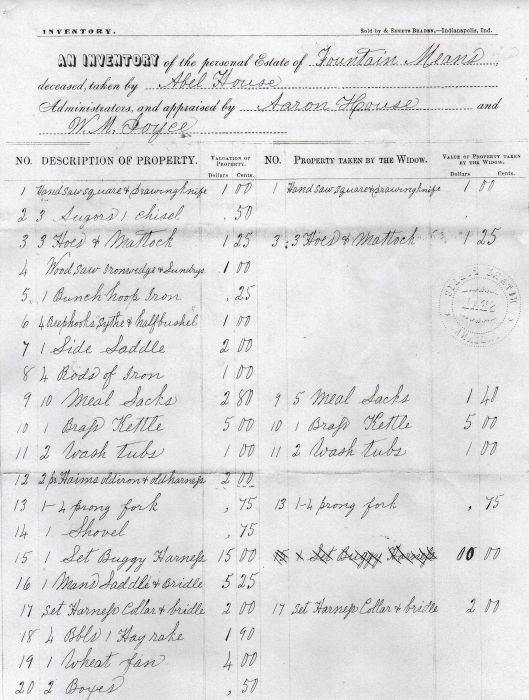 INVENTORY. Sold by & SENETS BRADEN,—Indianapolis, Ind.
AN INVENTORY of the personal Estate of Fountain Means
deceased, taken by Abel House
Administrators, and appraised by Aaron House and
W.M. Joyce
NO. DESCRIPTION OF PROPERTY. VALUATION OF PROPERTY. NO. PROPERTY TAKEN BY THE WIDOW. VALUE OF PROPERTY TAKEN BY THE WIDOW
Dollars Cents. Dells Cents.
1 Hand saw square & drawing knife 1 00 1 Hand saw square & drawing knife 1 00
2 3 Augors 1 chisel , 50
3 3 Hoes & Mattock 1 25 3 3 Hoes & Mattock 1 25
4 Wood saw Iron wedge & Sundrys 1 00
5 1 Bunch hoop Iron , 25
6 4 Reephooks, Sythe & half bushel 1 00
7 1 Side Saddle 2 00
8 4 Rods of Iron 1 00
9 10 Meal Sacks 2 80 9 5 Meal Sacks 1 40
10 1 Brass Kettle 5 00 10 1 Brass Kettle 5 00
11 2 Wash tubs 1 00 11 2 Wash tubs 1 00
12 2 pr Haims old iron & old harness 2 00
13 1-4 prong fork , 75 13 1-4 prong fork , 75
14 1 Shovel , 75
15 1 Set Buggy Harness 15 00 15 1 Set Buggy Harness 00 00
16 1 Mans Saddle & Bridle 5 25
17 Set Harness Collar & bridle 2 00 17 Set Harness Collar & bridle 2 00
18 4 Bbls 1 Hay rake 1 90
19 1 Wheat fan 4 00
20 2 Boxes , 50